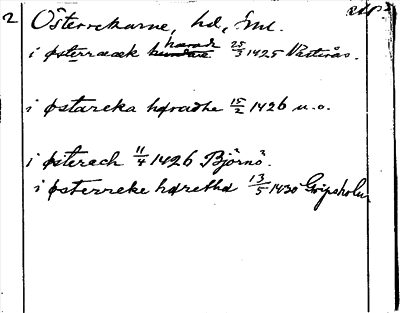 2 Österrekarne, hd, Sml.
i østerææk haradr 25/3 1425 Västerås.
i østareka høradhe 15/2 1426 u.o.
i østerech 11/4 1426 Björnö.
i østerreke hørethd 13/5 1430 Gripsholm